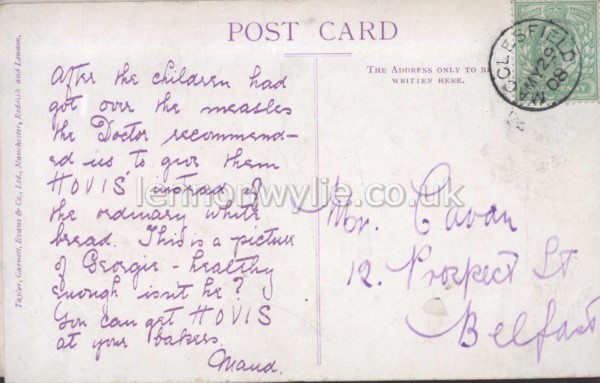 POST CARD
THE ADDRESS ONLY TO BE
WRITTEN HERE.
After the children had
got over the measles
the Doctor recommend-
ed us to give them
HOVIS instead of
the ordinary white
bread. This is a picture
of Georgie - healthy
enough isn't he?
You can get HOVIS
at your bakers.
Maud.
Mr. Cavan
12. Prospect St
Belfast
MACCLESFIELD
MY 29
08
Taylor, Garnett, Evans & Co., Ltd., Manchester, Reddish and London.
lennonwylie.co.uk